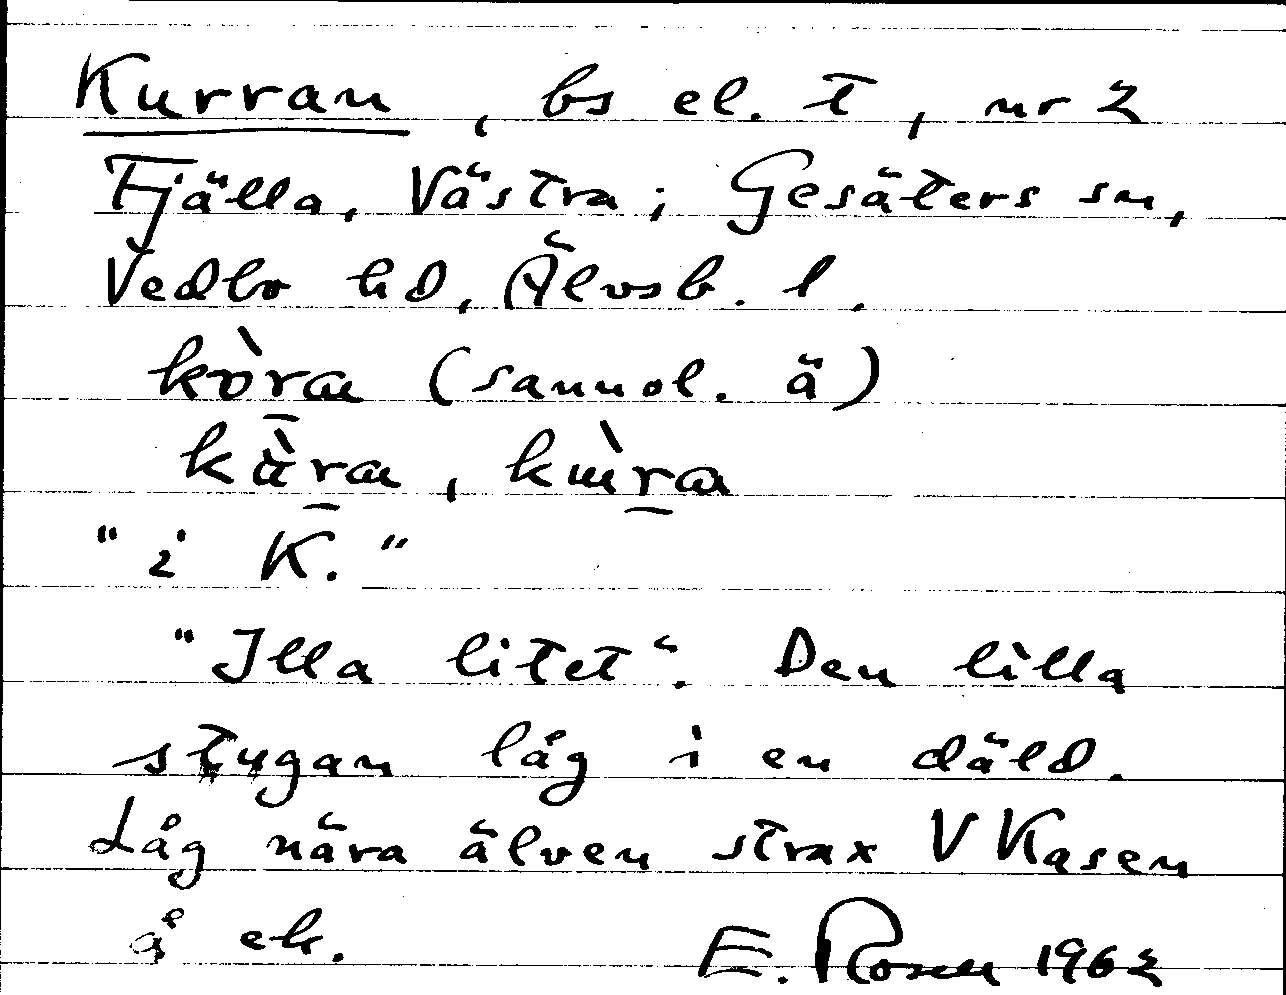 Kurran, bs el. t, nr 2
Fjälla, Västra; Gesäters sn,
Vedbo hd, Älvsb. l.
(sannol. ä)
"i K."
"Illa litet". Den lilla
stugan låg i en däld.
Låg nära älven strax V Kasen
å ek. E. Rosell 1962